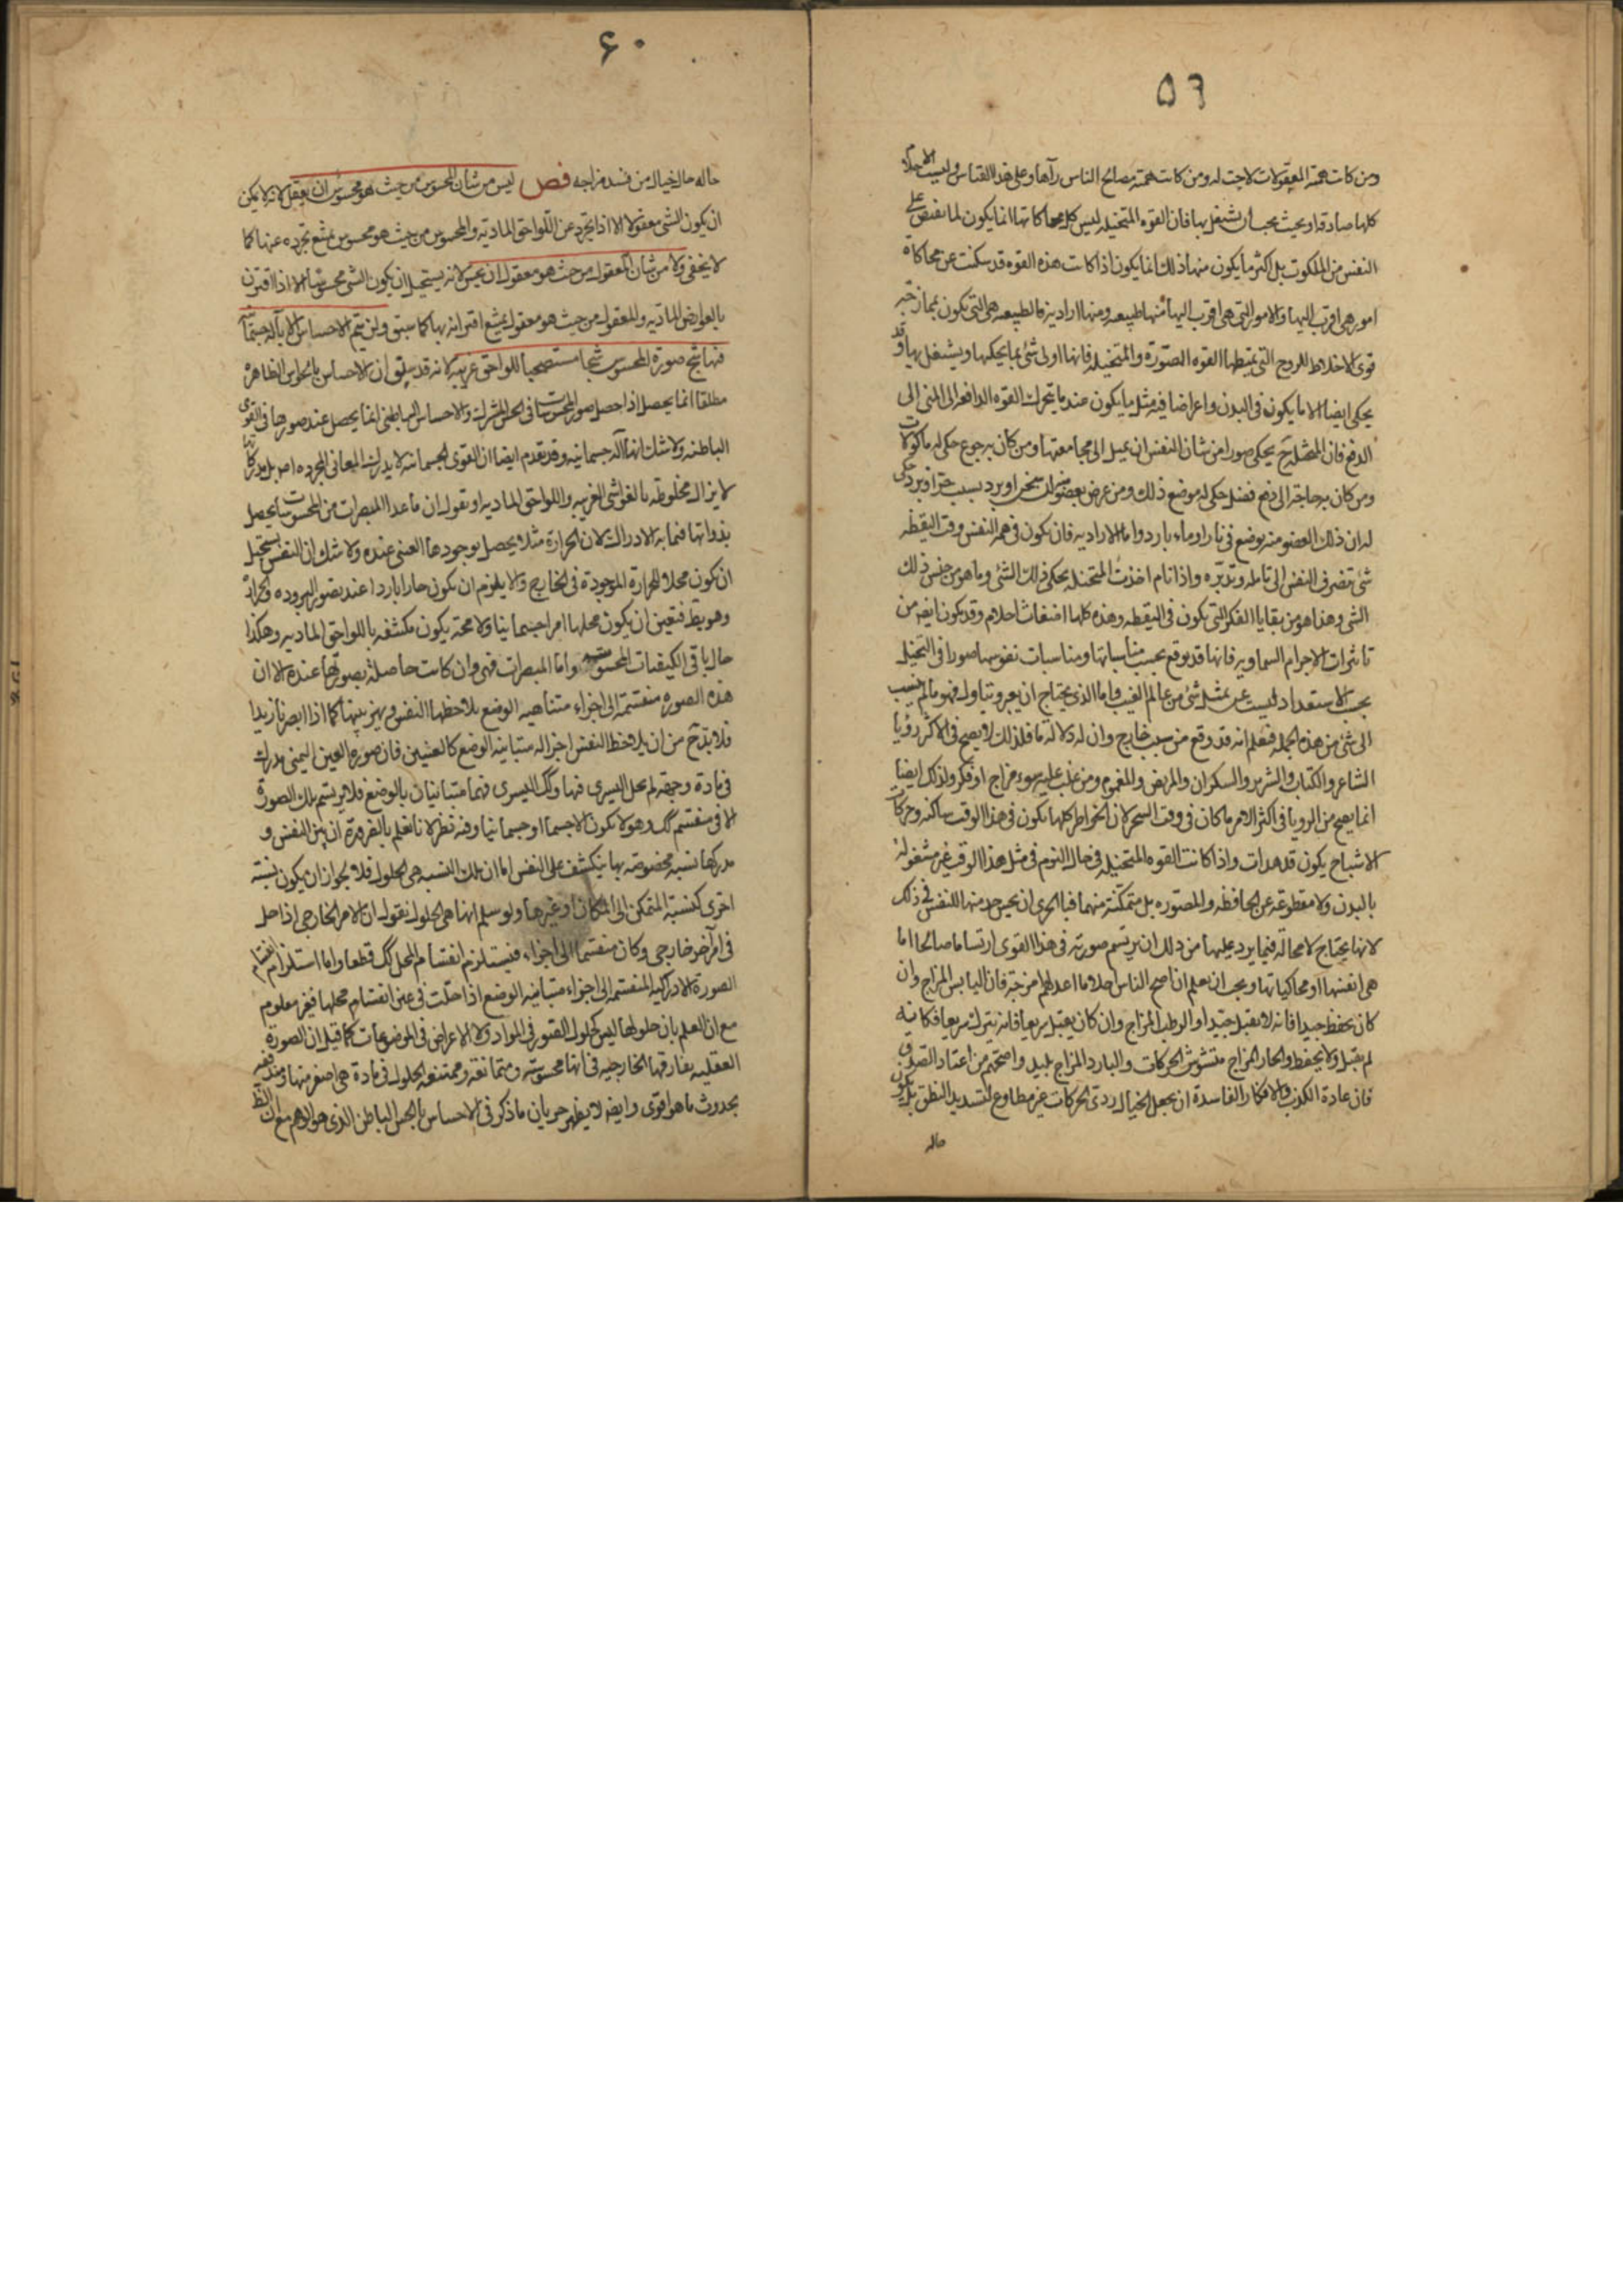 ٥٦
ومن كانت همته المعقولات لاحت له ومن كانت همته مصالح الناس رآها وعلى هذا القياس وليست الاحلام
كلها صادقة وبحيث يجب ان يشتغل بها فان القوه المتخيله ليس كل محاكاتها انما يكون لما يفيض على
النفس من الملكوت بل اكثر ما يكون منها ذلك انما يكون اذا كانت هذه القوه قد سكنت عن محاكاة
امور هى اقرب اليها والامور التى هى اقرب اليها منها طبيعيه ومنها اراديه فالطبيعيه هى التى تكون بممازجه
قوى الاخلاط للروح التى يمتطيها القوه المصوره والمتخيله فانها اولى شئ بما يحكيها ويشتغل بها وقد
يحكى ايضا الاما يكون فى البدن واعراضا فيه مثل ما يكون عند ما يتحرك القوه الدافعه للمنى الى
الدفع فان المتخيله ح يحكى صورا من شان النفس ان يميل الى مجامعتها ومن كان به جوع حكى له ماكولات
ومن كان به حاجة الى دفع فضل حكى له موضع ذلك ومن عرض بعضو منه ان سخن او برد بسبب حر او برد حكى
له ان ذلك العضو منه يوضع فى نار او ماء بارد واما الاراديه فان يكون فى همّ النفس وقت اليقظه
شئ تصرف النفس الى تامله وتدبره واذا نام اخذت المتخيله يحكى ذلك الشئ وما هو من جنس ذلك
الشئ وهذا هو من بقايا الفكر التى يكون فى اليقظه وهذه كلها اضغاث احلام وقد يكون ايضه من
تاثيرات الاجرام السماويه فانها قد يوقع بحسب مناسباتها ومناسبات نفوسها صورا فى التخيل
بحسب الاستعداد ليست عن تمثل شئ من عالم الغيب واما الذى يحتاج ان يعبر ويتاول فهو ما لم ينسب
الى شئ من هذه الجمله فيعلم انه قد وقع من سبب خارج وان له دلالة ما فلذلك لا يصح فى الاكثر رؤيا
الشاعر والكذاب والشرير والسكران والمريض والمغموم ومن غلب عليه سوء مزاج او فكر ولذلك ايضا
انما يصح من الرويا فى اكثر الامر ما كان فى وقت السحر لان الخواطر كلها يكون فى هذا الوقت ساكنه وحركات
الاشباح يكون قد هدات واذا كانت القوه المتخيله فى حال النوم فى مثل هذا الوقت غير مشغولة
بالبدن ولا مقطوعه عن الحافظه والمصوره بل متمكنة منهما فبالحرى ان يحسن خدمتها للنفس فى ذلك
لانها يحتاج لا محالة فيما يرد عليها من ذلك ان يرتسم صورته فى هذا القوى ارتساما صالحا اما
هى انفسها او محاكياتها ويجب ان يعلم ان اصح الناس احلاما اعدلهم امزجة فان اليابس المزاج وان
كان يحفظ جيدا فانه لا يقبل جيدا والرطب المزاج وان كان يقبل سريعا فانه يترك سريعا فكانه
لم يقبل ولا يحفظ والحار المزاج متشوش الحركات والبارد المزاج بليد واصحهم من اعتاد الصدق
فان عادة الكذب والافكار الفاسدة ان يجعل الخيال ردى الحركات غير مطاوع لتسديد النطق بل يكون
حاله
٦٠
حاله حال خيال من فسد مزاجه فص ليس من شان المحسوس من حيث هو محسوس ان يعقل لانه لا يمكن
ان يكون الشئ معقولا الا اذا تجرد عن اللواحق الماديه والمحسوس من حيث هو محسوس يمتنع تجرده عنها كما
لا يخفى ولا من شان المعقول من حيث هو معقول ان يحس لانه يستحيل ان يكون الشئ محسوسا الا اذا اقترن
بالعوارض الماديه والمعقول من حيث هو معقول يمتنع اقترانه بها كما سبق ولن يتم الاحساس الا بآلة جسمانية
فيها يتشبح صورة المحسوس شبحا مستصحبا للواحق غريبه لانه قد سبق ان الاحساس بالحواس الظاهره
مطلقا انما يحصل اذا حصل صور المحسوسات فى الحس المشترك والاحساس الباطنى انما يحصل عند صورها فى القوى
الباطنه ولا شك انها آلة جسمانيه وقد تقدم ايضا ان القوى الجسمانيه لا يدرك المعانى المجرده بل مدركاتها
لا يزال مخلوطه بالغواشى الغريبه واللواحق الماديه او نقول ان ما عدا المبصرات من المحسوسات يحصل
بذواتها فيما به الادراك لان الحرارة مثلا يحصل بوجودها العينى عنده ولا شك ان النفس يستحيل
ان تكون محلا للحرارة الموجودة فى الخارج والا يلزم ان تكون حارا باردا عند تصور البروده والحرارة
وهو بط فتعين ان يكون محلها امرا جسمانيا ولا محة يكون مكتنفه باللواحق الماديه وهكذا
حال باقى الكيفيات المحسوسه واما المبصرات فهى وان كانت حاصلة بصورتها عنده الا ان
هذه الصوره منقسمة الى اجزاء متباينه الوضع يلاحظها النفس ويميز بينها كما اذا ابصرنا زيدا
فلا بد ح من ان يلاحظ النفس اجزاله متباينه الوضع كالعينين فان صوره العين اليمنى مدرك
فى مادة وجهة لم يحل اليسرى فيها وكك اليسرى فهما متباينان بالوضع فلا يرتسم تلك الصورة
الا فى منقسم كك وهو لا يكون الا جسما او جسمانيا وفيه نظر لانا نعلم بالضرورة ان بين النفس و
مدركها نسبه مخصوصه بها ينكشف على النفس اما ان تلك النسبه هى الحلول فلا لجواز ان يكون نسبة
اخرى كنسبة المتمكن الى المكان او غيرها ولو سلم انها هى الحلول نقول ان الامر الخارجى اذا حل
فى امر آخر خارجى وكان منقسما الى اجزاء فيستلزم انقسام المحل كك قطعا واما استلزام انقسام
الصورة الادراكيه المنقسمه الى اجزاء متباينه الوضع اذا حلت فى عين انقسام محلها فغير معلوم
مع ان العلم بان حلولها ليس كحلول الصور فى المواد ولا الاعراض فى الموضوعات كما قيل ان الصورة
العقليه يفارقها الخارجيه فى انها محسوسه ومتمانعه وممتنعه الحلول فى مادة هى اصغر منها ومندفعه
بحدوث ما هو اقوى وايضه لا يظهر جريان ما ذكر فى الاحساس بالحس الباطن الذى هو الوهم مع ان الظ